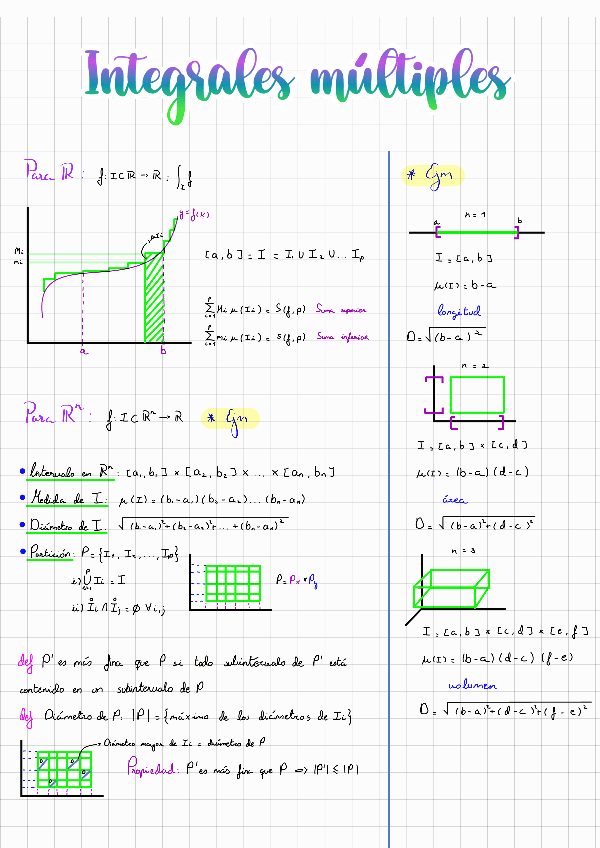 Integrales múltiples
Para ℝ: f: I⊂ℝ → ℝ : ∫_I f
y = f(x)
Mi
mi
μ(Ii)
a
b
[a,b] = I = I₁ ∪ I₂ ∪ ... Iₚ
∑_{i=1}^{p} Mi μ(Ii) = S(f,p) Suma superior
∑_{i=1}^{p} mi μ(Ii) = s(f,p) Suma inferior
Para ℝⁿ: f: I⊂ℝⁿ → ℝ * Ejm
• Intervalo en ℝⁿ: [a₁,b₁] × [a₂,b₂] × ... × [an,bn]
• Medida de I: μ(I) = (b₁-a₁)(b₂-a₂)...(bn-an)
• Diámetro de I: √((b₁-a₁)²+(b₂-a₂)²+...+(bn-an)²)
• Partición: P = {I₁, I₂, ..., Ip}
i) ⋃_{i=1}^{p} Ii = I
ii) I̊i ∩ I̊j = ∅ ∀i,j
P = Px × Py
def P' es más fina que P si todo subintervalo de P' está
contenido en un subintervalo de P
def Diámetro de P: |P| = {máximo de los diámetros de Ii}
→ Diámetro mayor de Ii = diámetro de P
Propiedad: P' es más fina que P ⇒ |P'| ≤ |P|
* Ejm
n = 1
a
b
I = [a,b]
μ(I) = b-a
longitud
D = √((b-a)²)
n = 2
I = [a,b] × [c,d]
μ(I) = (b-a)(d-c)
área
D = √((b-a)²+(d-c)²)
n = 3
I = [a,b] × [c,d] × [e,f]
μ(I) = (b-a)(d-c)(f-e)
volumen
D = √((b-a)²+(d-c)²+(f-e)²)